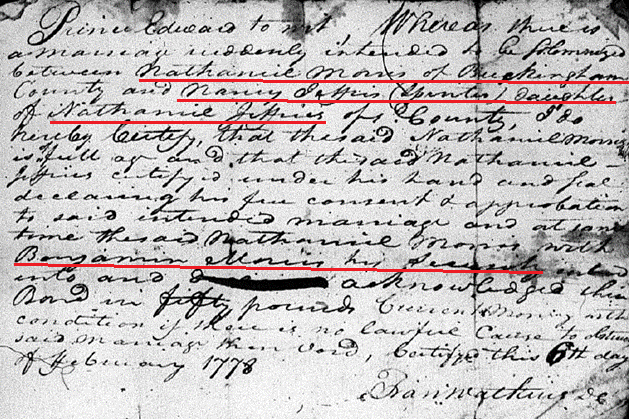 Prince Edward to wit, Whereas there is
a marriage suddenly intended to be solemnized
between Nathaniel Morris of Buckingham
County and Nancy Jeffris (Spinster) daughter
of Nathaniel Jeffries of County, I do
hereby Certify, that the said Nathaniel Morris
is full age and that the said Nathaniel
Jeffries certifyd under his hand and seal
declaring his free consent & approbation
to said intended marriage and at same
time the said Nathaniel Morris with
Benjamin Morris his Security
into and acknowledged their
Bond in fifty pounds Current Money with
condition if there is no lawful Cause to obstruct
said marriage then void, Certifyd this 6th day
of February 1778
Fran Watkins